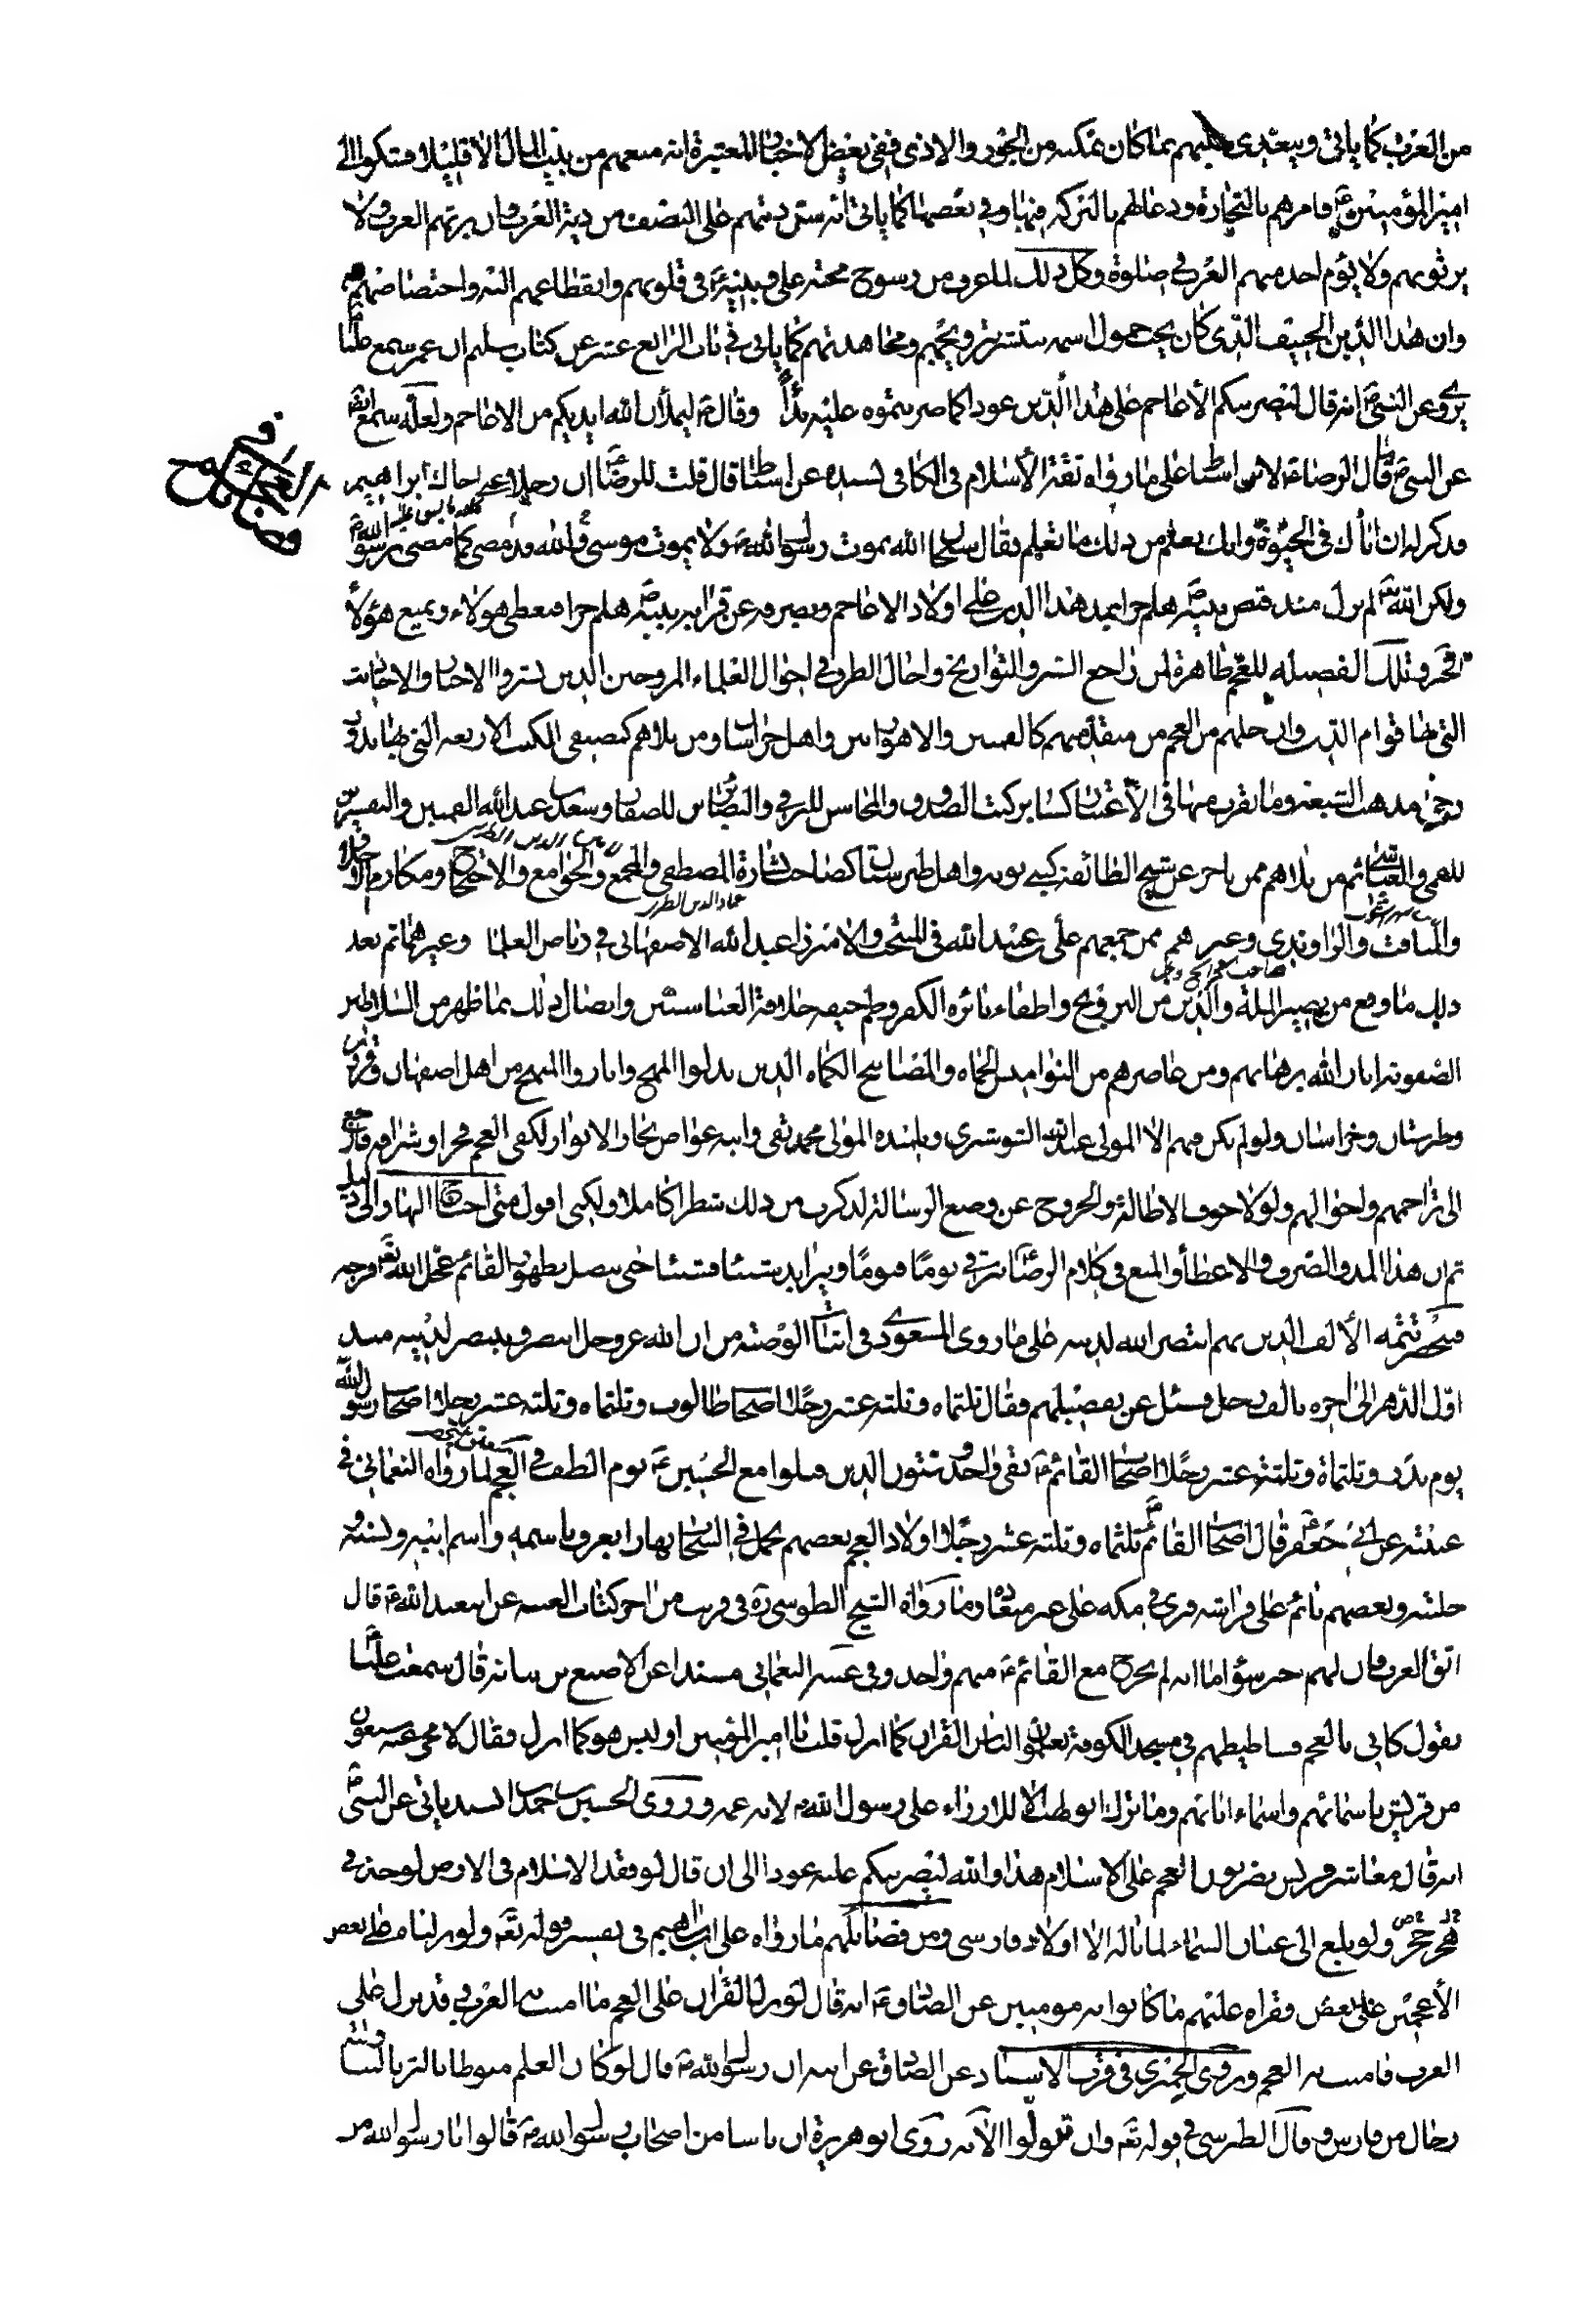 من العرب كما يأتي ويتعدى عليهم بما كان يمكنه من الجور والاذى ففي بعض الاخبار المعتبرة انه منعهم من بيت المال الا قليلا فشكوا الى
امير المؤمنين ع فامرهم بالتجارة ودعا لهم بالبركة فيها وفي بعضها كما يأتي انه سن ديتهم على النصف من دية العرب وان يرثهم العرب ولا
يرثونهم ولا يؤم احد منهم العرب في صلوة وكل ذلك لما عرف من رسوخ محبة علي وبنيه ع في قلوبهم وانقطاعهم اليه واختصاصهم به
وان هذا الدين الحنيف الذي كان يجهول اسمه ستنشر ويجهم ومجاهدتهم كما يأتي في باب الرابع عشر عن كتاب سليم ان عمر سمع عليا
يروي عن النبي ص انه قال ليضربنكم الاعاجم على هذا الدين عودا كما ضربتموه عليه بدأ وقال ص ليملأن الله ايديكم من الاعاجم ولعله سمع ايضا
عن النبي ص قال الرضا ع لابن اسباط على ما رواه ثقة الاسلام في الكافي بسنده عن ابن اسباط قال قلت للرضا ع ان رجلا عنى اخاك ابراهيم
فذكر له ان اباك في الحيوة وانك تعلم من ذلك ما تعلم فقال سبحان الله يموت رسول الله ص ولا يموت موسى ع والله قد مضى كما مضى رسول الله ص
ولكن الله تع لم يزل منذ قبض نبيه ص هلم جرا يمن بهذا الدين على اولاد الاعاجم ويصرفه عن قرابة نبيه ص هلم جرا فيعطى هؤلاء ويمنع هؤلاء
الخبر وتلك الفضيلة للعجم ظاهرة لمن راجع السير والتواريخ واجال الطرف في احوال العلماء المروجين الذين نشروا الاخبار والاحاديث
التي بها قوام الدين وان جلهم من العجم من متقدميهم كالقميين والاهوازيين واهل خراسان ومن تلاهم كمصنفي الكتب الاربعة التي بها تدور
رحى مذهب الشيعة وما يقرب منها في الاعتبار كساير كتب الصدوق والمحاسن للبرقي والبصاير للصفار وسعد بن عبد الله القميين والتفسيرين
للقمي والعياشي ثم من تلاهم ممن تاخر عن شيخ الطائفة كبني بويه واهل طبرستان كصاحب بشارة المصطفى والمجمع والجوامع والاحتجاج ومكارم الاخلاق
عماد الدين الطبري
والمناقب والراوندي وغيرهم ممن جمعهم علي بن عبيد الله في المنتجب والاميرزا عبد الله الاصفهاني في رياض العلماء وغيرهما ثم بعد
ذلك ما وقع من نصير الملة والدين من الترويج واطفاء نائرة الكفر وطم جيفة خلافة العباسيين وايصال ذلك بما ظهر من السلاطين
الصفوية انار الله برهانهم ومن عاصرهم من النواميس الحماة والمصابيح الكماة الذين بذلوا المهج واناروا المنهج من اهل اصفهان وقزوين
وطبرستان وخراسان ولو لم يكن منهم الا المولى عبد الله التوشتري وتلميذه المولى محمد تقي وابنه غواص بحار الانوار لكفى العجم فخرا وشرافة فارجع
الى تراجمهم واحوالهم ولولا خوف الاطالة والخروج عن وضع الرسالة لذكرت من ذلك شطرا كاملا ولكني اقول متى احتاج النهار الى دليل
ثم ان هذا المد والصرف والاعطاء والمنع في كلام الرضا ع يترقى يوما فيوما ويزايد شيئا فشيئا حتى يتصل بظهور القائم عجل الله تع فرجه
فيحضر تتمه الالف الذين بهم ينتصر الله لدينه على ما روى المسعودي في اثبات الوصية من ان الله عز وجل انتصر وينتصر لدينه منذ
اول الدهر الى اخره بالف رجل فسئل عن تفصيلهم فقال ثلثمائة وثلثة عشر رجلا اصحاب طالوت وثلثمائة وثلثة عشر رجلا اصحاب رسول الله
يوم بدر وثلثمائة وثلثة عشر رجلا اصحاب القائم ع بقي واحد وستون الذين قتلوا مع الحسين ع يوم الطف في العجم لما رواه النعماني في
غيبته عن ابي جعفر ع قال اصحاب القائم ع ثلثمائة وثلثة عشر رجلا اولاد العجم بعضهم يحمل في السحاب نهارا يعرف باسمه واسم ابيه ونسبه و
حليته وبعضهم نائم على فراشه فيرى في مكة على غير ميعاد وما رواه الشيخ الطوسي ره في قريب من اخر كتاب الغيبة عن ابي عبد الله ع قال
اتق العرب فان لهم خبر سوء اما انه لم يخرج مع القائم ع منهم واحد وفي غيبة النعماني مسندا عن الاصبغ بن نباته قال سمعت عليا ع
يقول كاني بالعجم فساطيطهم في مسجد الكوفة يعلمون الناس القران كما انزل قلت يا امير المؤمنين اوليس هو كما انزل فقال لا محي عنه سبعون
من قريش باسمائهم واسماء ابائهم وما ترك ابو لهب الا للازراء على رسول الله ص لانه عمه وروى الحسين بن احمد بسند ياتي عن النبي ص
انه قال معاشر قريش تضربون العجم على الاسلام هذا والله ليضربنكم عليه عودا الى ان قال لو فقد الاسلام في الارض لوجد في
هجر حجر ولو بلغ الى عنان السماء لما ناله الا اولاد فارس ومن فضائلهم ما رواه علي بن ابراهيم في تفسير قوله تع ولو نزلناه على بعض
الاعجمين على بعض فقراه عليهم ما كانوا به مومنين عن الصادق ع انه قال لو نزل القران على العجم ما امنت به العرب قد نزل على
العرب فامنت به العجم وروى الحميري في قرب الاسناد عن الصادق عن ابيه ان رسول الله ص قال لو كان العلم منوطا بالثريا لتناوله
رجال من فارس وقال الطبرسي في قوله تع وان تتولوا الآية روى ابو هريرة ان ناسا من اصحاب رسول الله ص قالوا يا رسول الله من
في العجم وفضايلهم